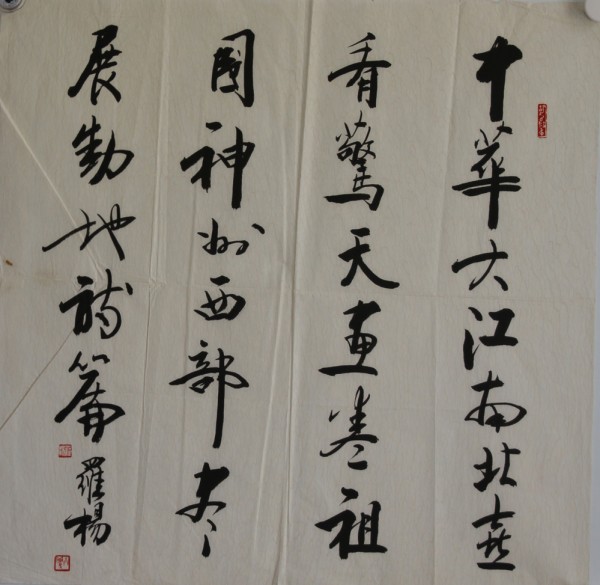 中華大江南北喜
看驚天畫卷祖
國神州西部盡
展動地詩篇
羅楊